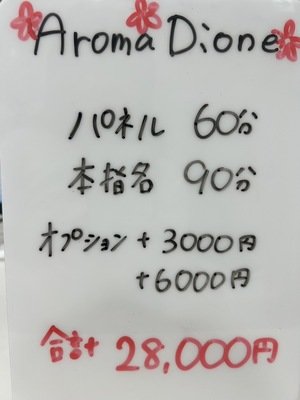 Aroma Dione
パネル 60分
本指名 90分
オプション + 3000円
+6000円
合計 28,000円